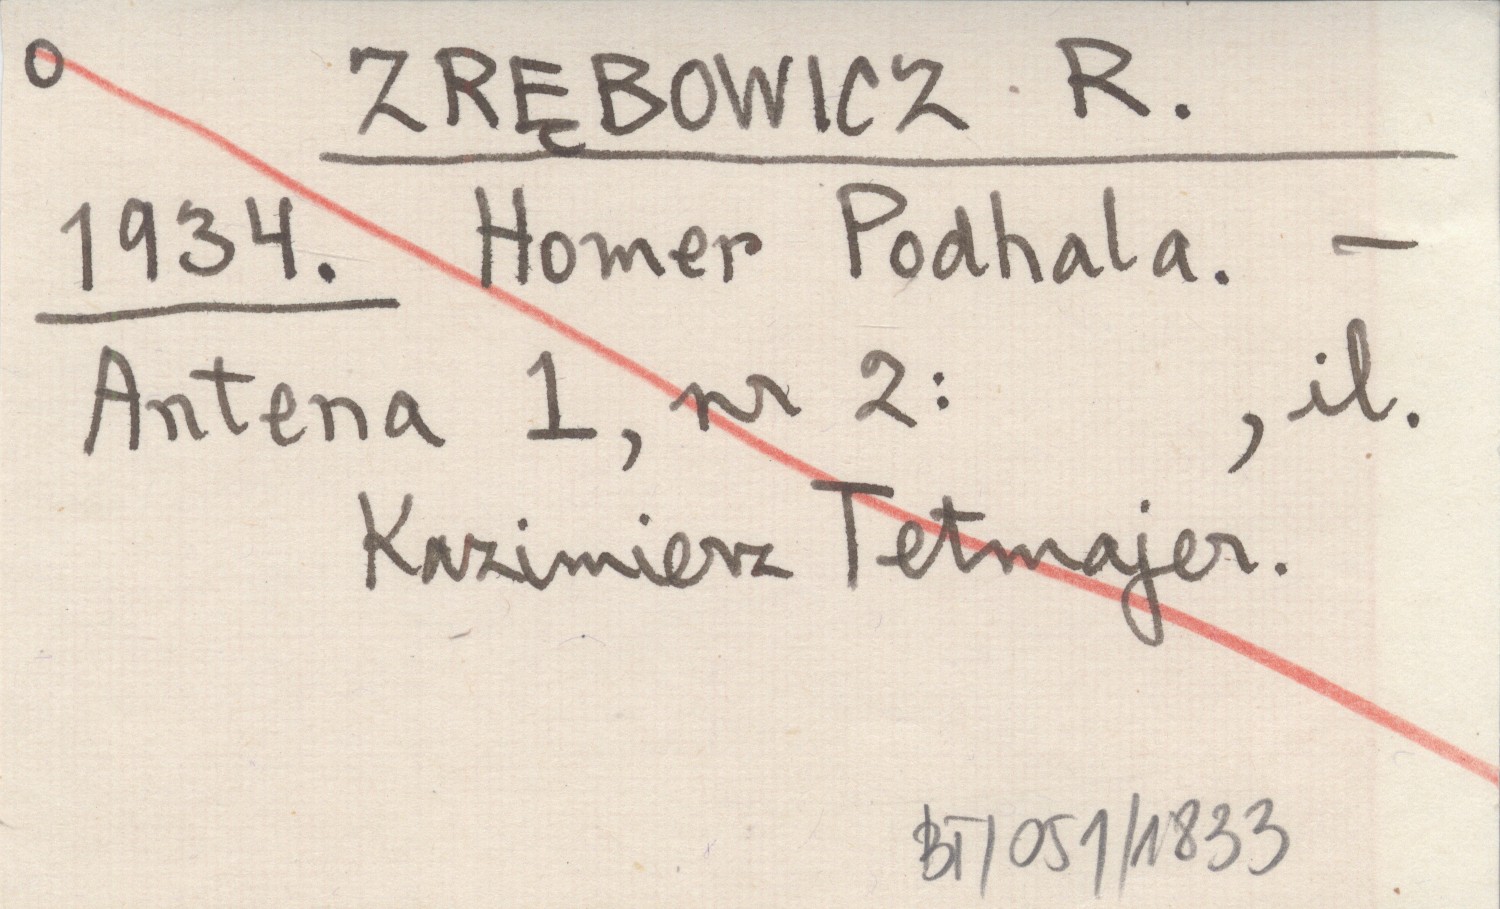 o ZRĘBOWICZ R.
1934. Homer Podhala. —
Antena 1, nr 2: , il.
Kazimierz Tetmajer.
BT/051/1833